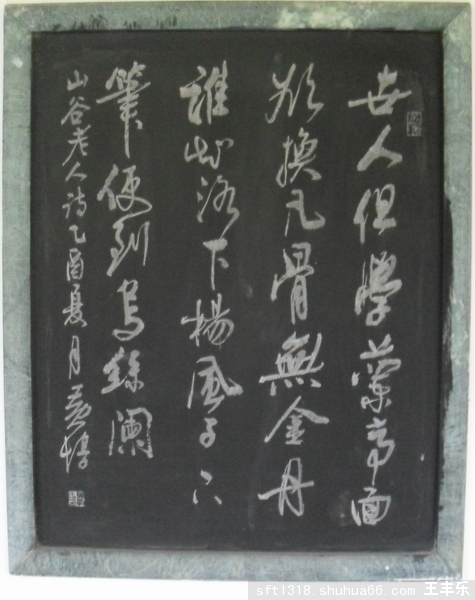 世人但學蘭亭面
欲換凡骨無金丹
誰知洛下楊風子下
筆便到烏絲闌
山谷老人詩乙酉夏月黃惇
sftl318.shuhua66.com 王丰乐